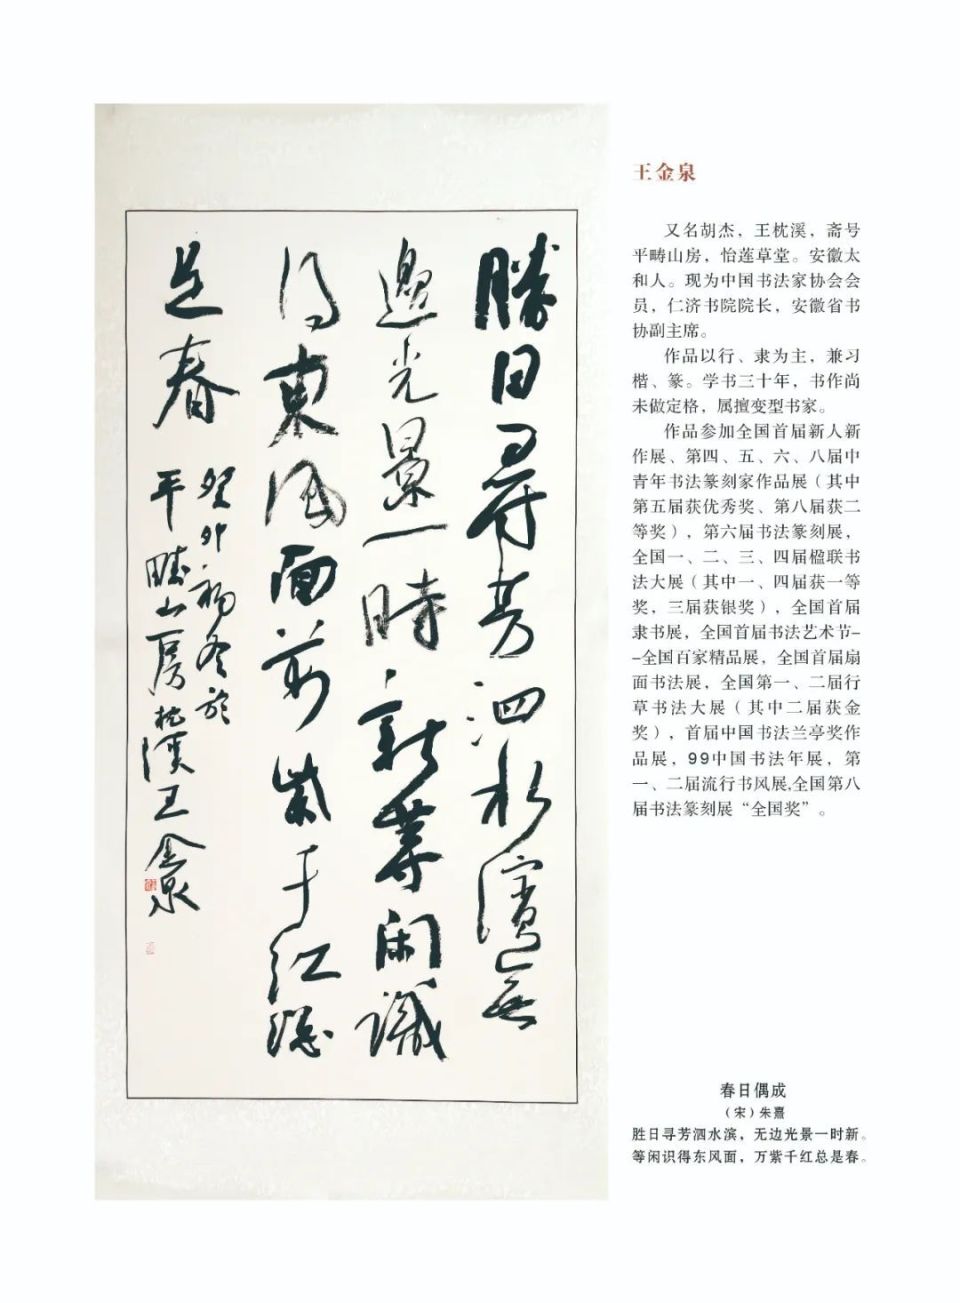 勝日尋芳泗水濱無
邊光景一時新等闲識
得東风面萬紫千红總
是春
癸卯初冬於
平疇山房枕溪王金泉
王金泉
又名胡杰，王枕溪，斋号
平畴山房，怡莲草堂。安徽太
和人。现为中国书法家协会会
员，仁济书院院长，安徽省书
协副主席。
作品以行、隶为主，兼习
楷、篆。学书三十年，书作尚
未做定格，属擅变型书家。
作品参加全国首届新人新
作展、第四、五、六、八届中
青年书法篆刻家作品展（其中
第五届获优秀奖、第八届获二
等奖），第六届书法篆刻展，
全国一、二、三、四届楹联书
法大展（其中一、四届获一等
奖，三届获银奖），全国首届
隶书展，全国首届书法艺术节-
-全国百家精品展，全国首届扇
面书法展，全国第一、二届行
草书法大展（其中二届获金
奖），首届中国书法兰亭奖作
品展，99中国书法年展，第
一、二届流行书风展,全国第八
届书法篆刻展“全国奖”。
春日偶成
（宋）朱熹
胜日寻芳泗水滨，无边光景一时新。
等闲识得东风面，万紫千红总是春。